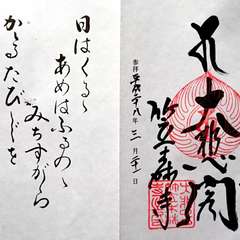 大悲閣
笠森寺
参拝 平成二十八年 三月 日
日はくるゝ
あめはふるのゝ
みちすがら
かゝるたびぢを